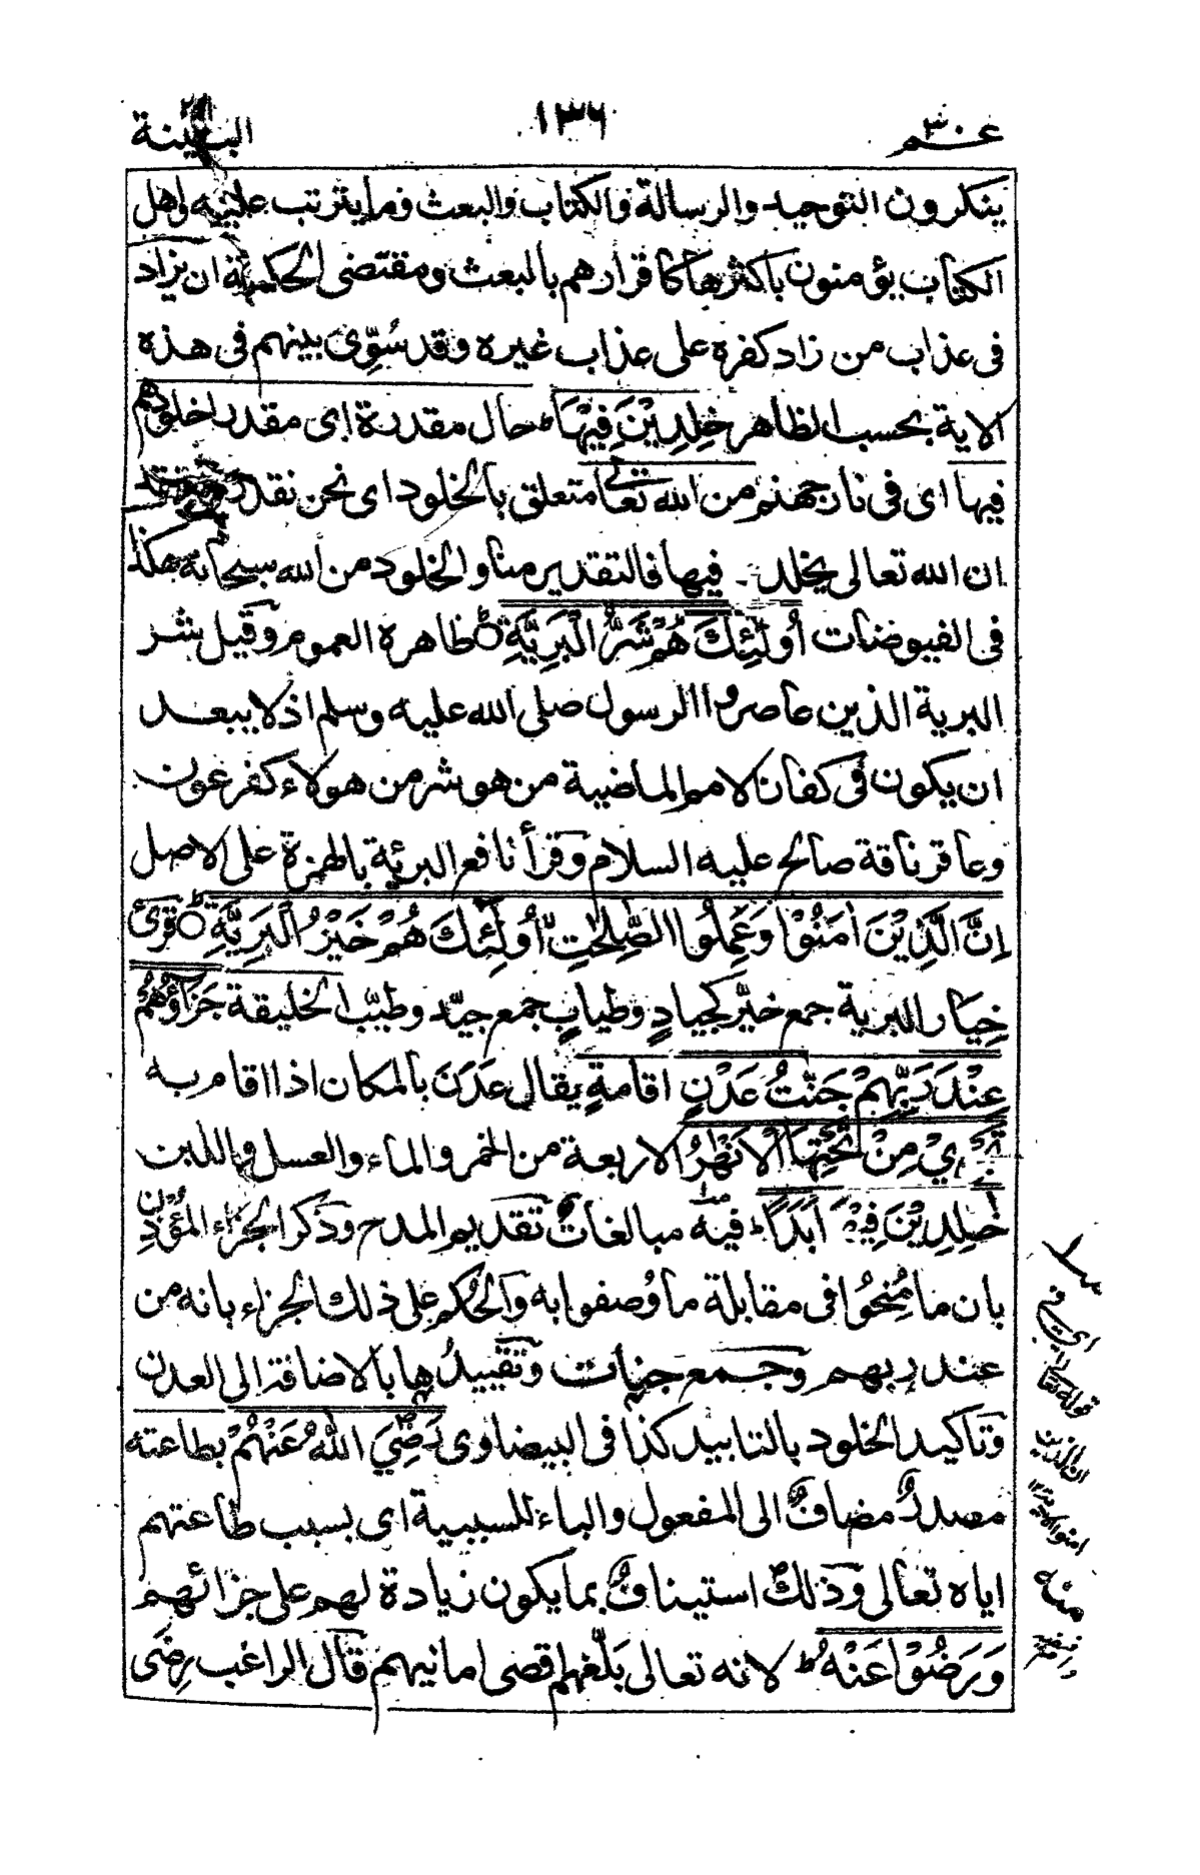 عم ٣٠
١٣٦
البينة
ينكرون التوحيد والرسالة والكتاب والبعث وما يترتب عليه واهل
الكتاب يؤمنون باكثرها كاقرارهم بالبعث ومقتضى الحكمة ان يزاد
فى عذاب من زاد كفره على عذاب غيره وقد سُوِّى بينهم فى هذه
الاية بحسب الظاهر خٰلِدِيْنَ فِيْهَا ط حال مقدرة اى مقدرا خلودهم
فيها اى فى نار جهنم من الله تعالى متعلق بالخلود اى نحن نقدر
ان الله تعالى يخلد فيها فالتقدير منا والخلود من الله سبحانه هكذا
فى الفيوضات أُولٰٓئِكَ هُمْ شَرُّ الْبَرِيَّةِ ط ظاهره العموم وقيل شر
البرية الذين عاصروا الرسول صلى الله عليه وسلم اذ لا يبعد
ان يكون فى كفار الامم الماضية من هو شر من هولاء كفرعون
وعاقر ناقة صالح عليه السلام وقرأ نافع البريئة بالهمزة على الاصل
اِنَّ الَّذِيْنَ اٰمَنُوْا وَعَمِلُوا الصّٰلِحٰتِ أُولٰٓئِكَ هُمْ خَيْرُ الْبَرِيَّةِ ط قرئ
خِيَار البرية جمع خيّر كجيادٍ وطيابٍ جمع جيّد وطيّب الخليقة جَزَآؤُهُمْ
عِنْدَ رَبِّهِمْ جَنّٰتُ عَدْنٍ اقامةٍ يقال عَدَنَ بالمكان اذا اقام به
تَجْرِيْ مِنْ تَحْتِهَا الْاَنْهٰرُ الاربعة من الخمر والماء والعسل واللبن
خٰلِدِيْنَ فِيْهَآ اَبَدًا ط فيه مبالغات تقديم المدح وذكر الجزاء المؤذن
بان ما مُنِحُوا فى مقابلة ما وُصفوا به والحُكم على ذلك الجزاء بانه من
عند ربهم وجمع جنات وتقييدُها بالاضافة الى العدن
وتاكيد الخلود بالتابيد كذا فى البيضاوى رَضِيَ اللّٰهُ عَنْهُمْ بطاعته
مصدرٌ مضافٌ الى المفعول والباء للسببية اى بسبب طاعتهم
اياه تعالى وذلك استينافٌ بما يكون زيادة لهم على جزائهم
وَرَضُوْا عَنْهُ ط لانه تعالى بَلّغهم اقصى امانيهم قال الراغب رضى
اى فى
قوله تعالى
ان الذين
امنوا الاية ١٢
منه